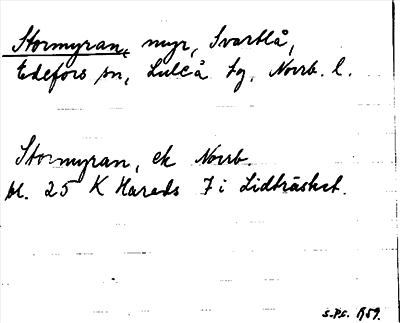 Stormyran, myr, Svartlå,
Edefors sn, Luleå tg, Norrb. l.
Stormyran, ek Norrb.
bl. 25 K Harads 7 i Lidträsket.
S.P.S. 1959.